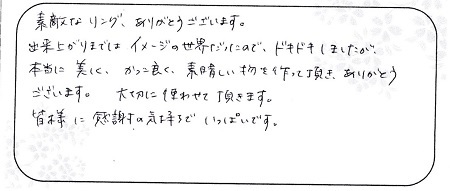 素敵なリング、ありがとうございます。
出来上がりまではイメージの世界だったので、ドキドキしましたが、
本当に美しく、かっこ良く、素晴しい物を作って頂き、ありがとう
ございます。 大切に使わせて頂きます。
皆様に感謝の気持ちでいっぱいです。